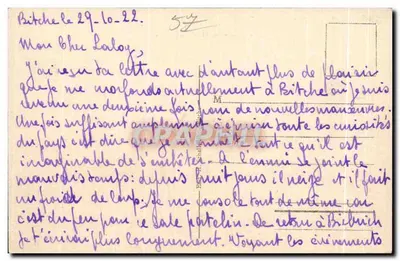 Bitche le 29-10-22.
57
Mon Cher Laloy,
J'ai reçu ta lettre avec d'autant plus de plaisir
que je me morfonds actuellement à Bitche où je suis
revenu une deuxième fois pour de nouvelles manœuvres.
Une fois suffisant amplement voir toutes les curiosités
du pays c'est dire que je ce qu'il est
inimaginable de s'embêter. A l'ennui se joint le
mauvais temps: depuis huit jours il neige et il fait
un froid de loup. Je me console tout de même car
c'est du peu pour ce sale patelin. De retour à Biebrich
je t'écrirai plus longuement. Voyant les évènements